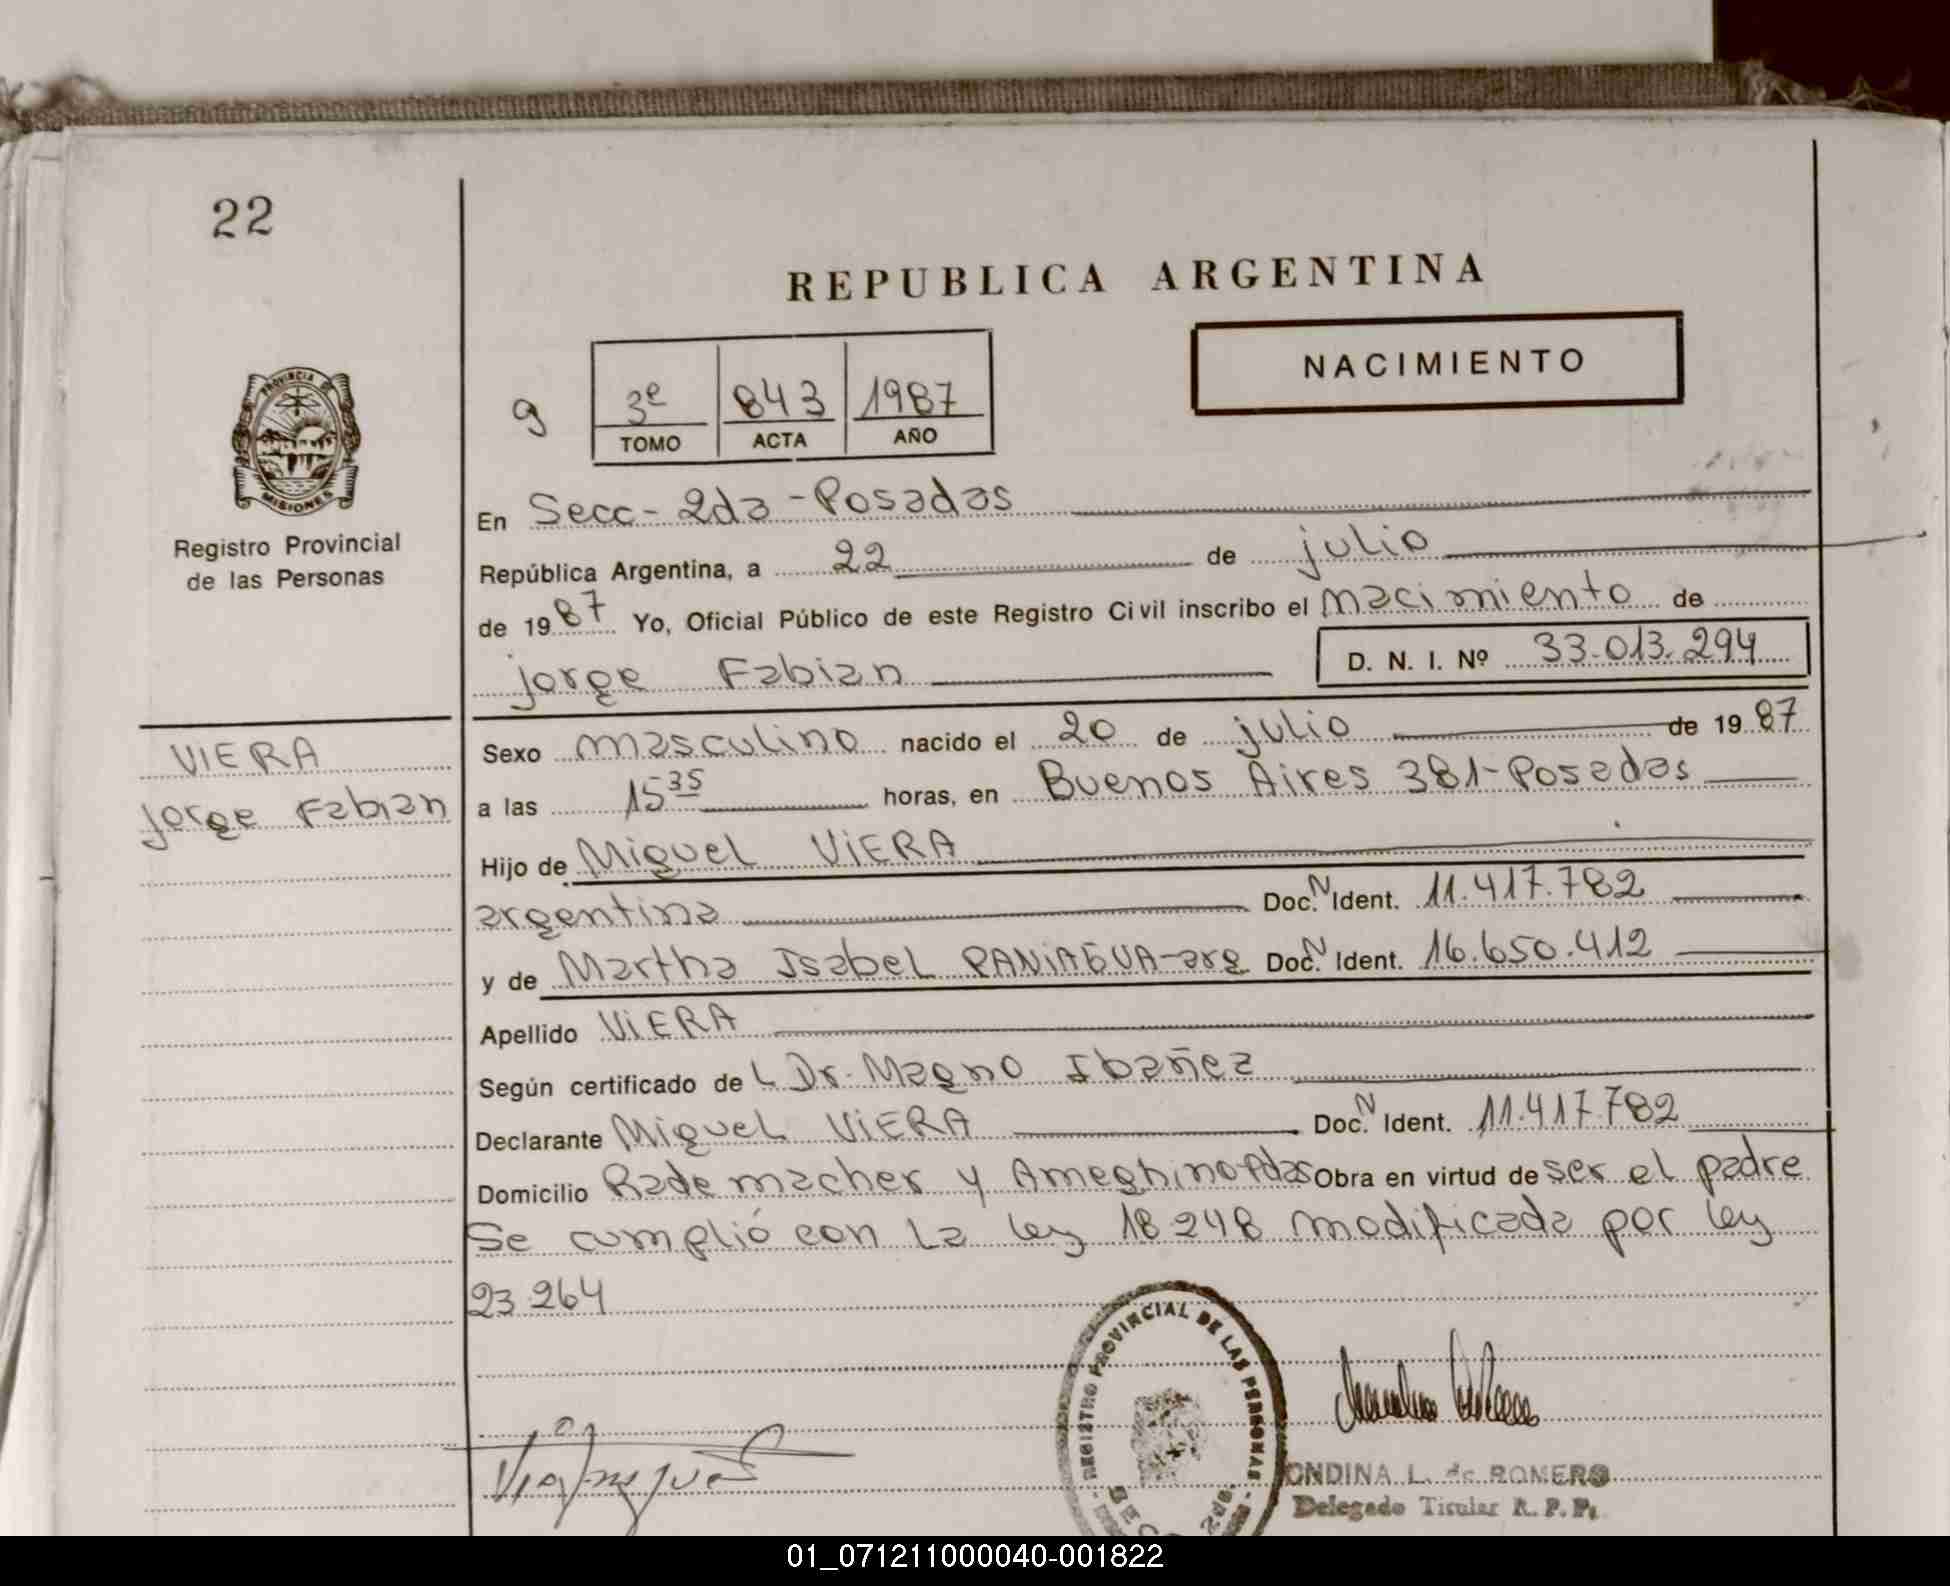 22
REPUBLICA ARGENTINA
NACIMIENTO
9
3e 843 1987
TOMO ACTA AÑO
PROVINCIA DE
MISIONES
Registro Provincial
de las Personas
En Secc-2da-Posadas
República Argentina, a 22 de julio
de 1987 Yo, Oficial Público de este Registro Civil inscribo el nacimiento de
jorge Fabian D. N. I. Nº 33.013.294
VIERA
jorge Fabian
Sexo masculino nacido el 20 de julio de 1987
a las 15 35 horas, en Buenos Aires 381-Posadas
Hijo de Miguel ViERA
argentina Doc. N Ident. 11.417.782
y de Martha Isabel PANiAGUA-arg Doc. N Ident. 16.650.412
Apellido ViERA
Según certificado de L Dr. Magno Ibañez
Declarante Miguel ViERA Doc. N Ident. 11.417.782
Domicilio Rademacher y Ameghino-Pdas Obra en virtud de ser el padre
Se cumplió con La Ley 18248 modificada por Ley
23264
REGISTRO PROVINCIAL DE LAS PERSONAS
ONDINA L. de ROMERO
Delegado Titular R. P. P.
01_071211000040-001822